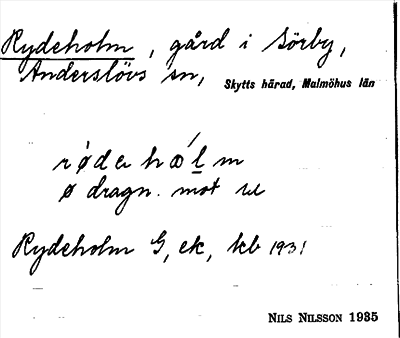 Rydeholm, gård i Sörby,
Anderslövs sn, Skytts härad, Malmöhus län
rǿdehœ́lm
ø dragn. mot
Rydeholm G, ek, kb 1931
NILS NILSSON 1935